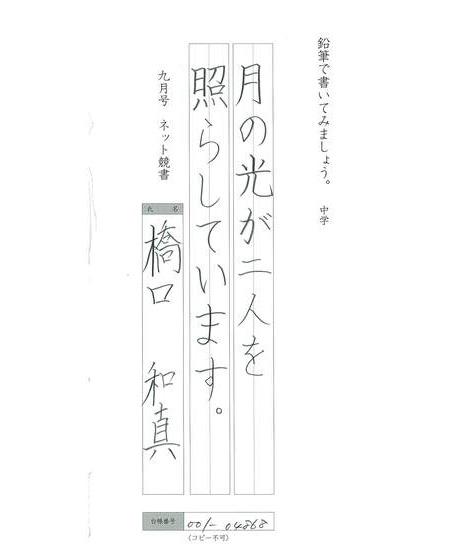 鉛筆で書いてみましょう。 中学
月の光が二人を
照らしています。
九月号 ネット競書
氏 名
橋口 和真
台帳番号 001-04868
(コピー不可)